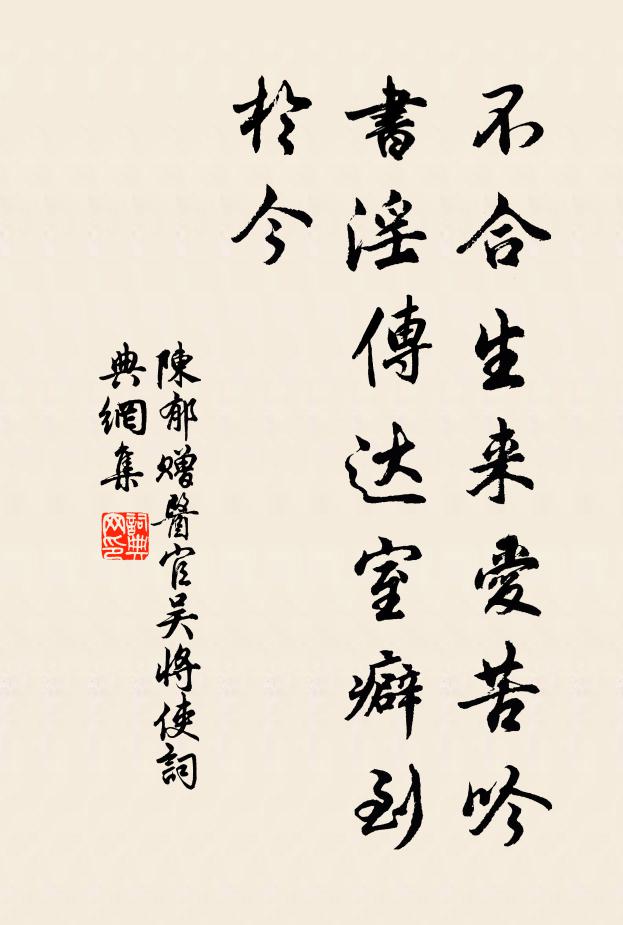 不合生来愛苦吟
書淫傳达室癖到
於今
陳郁贈醫官吴將使詞
典網集
詞典
网印